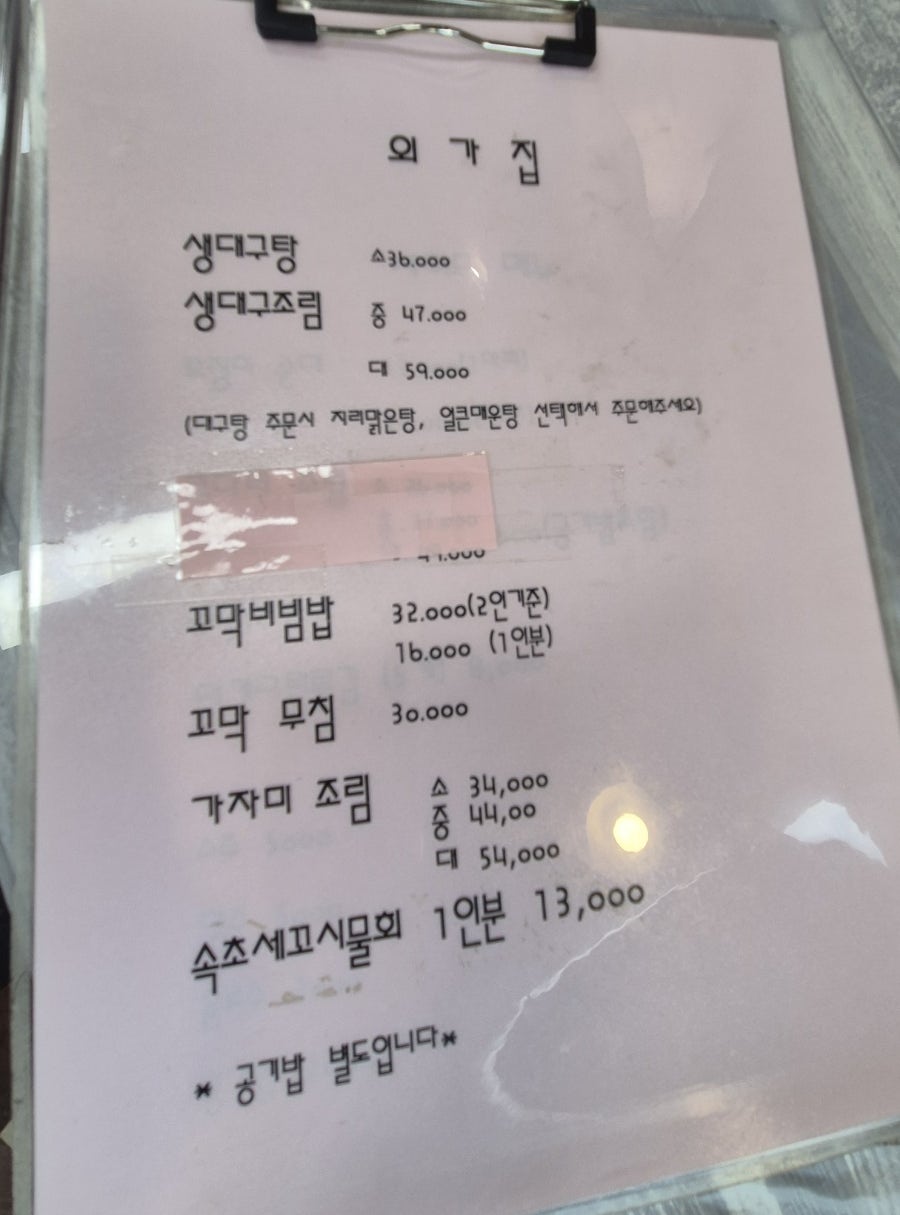 외 가 집
생대구탕 소36.000
생대구조림 중 47.000
대 59.000
(대구탕 주문시 지리맑은탕, 얼큰매운탕 선택해서 주문해주세요)
꼬막비빔밥 32.000(2인기준)
16.000 (1인분)
꼬막 무침 30.000
가자미 조림 소 34,000
중 44,00
대 54,000
속초세꼬시물회 1인분 13,000
* 공기밥 별도입니다*